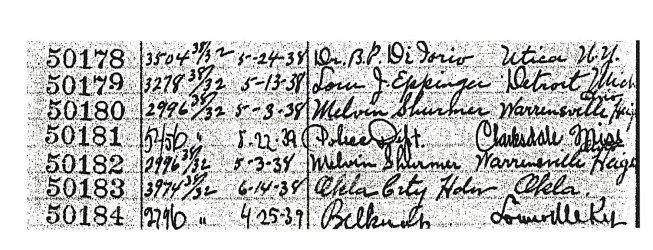 50178 3504 38/32 5-24-38 Dr. B.P. Di Iorio Utica N.Y.
50179 3278 38/32 5-13-38 Lou J. Eppinger Detroit Mich
50180 2996 38/32 5-3-38 Melvin Shurmer Warrensville Heig
50181 " 8-22-39 Police Dept. Clarksdale Miss
50182 2996 38/32 5-3-38 Melvin Shurmer Warrensville Heigh
50183 3974 38/32 6-14-38 Okla City Hdw Okla.
50184 2796 " 4 25-39 Belknap Louisville Ky